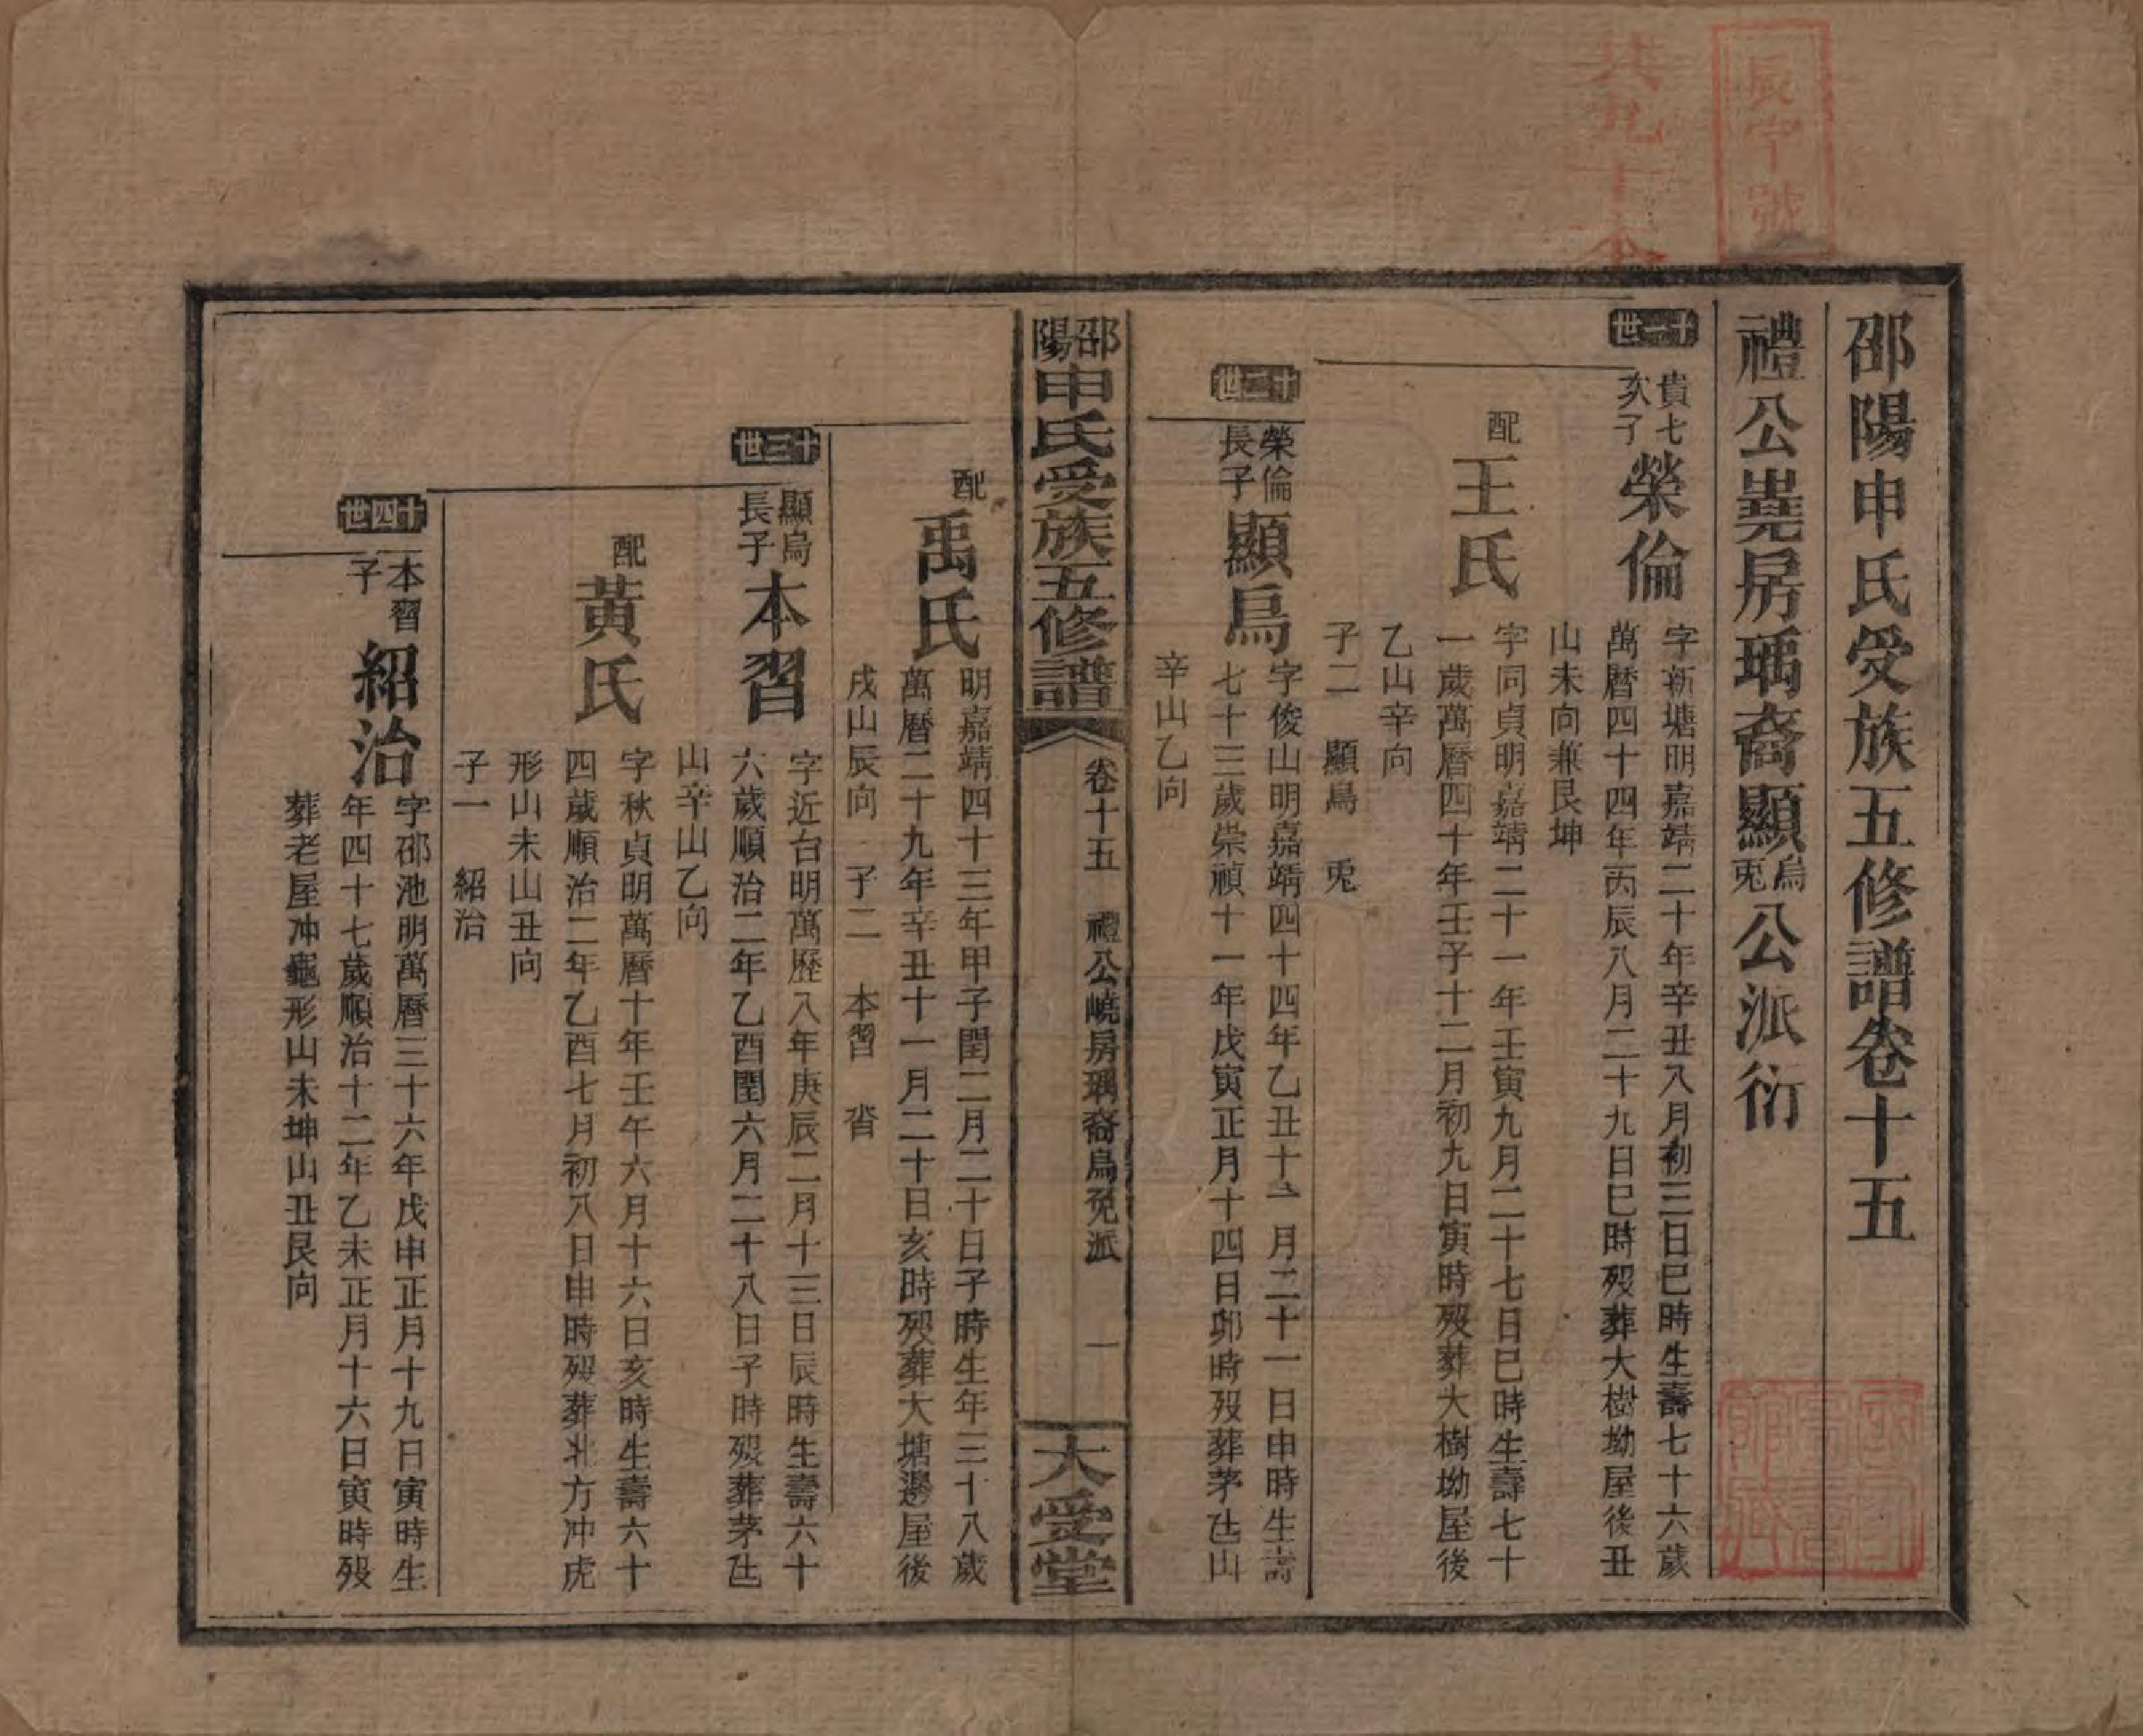 辰字號
共九十本
邵陽申氏受族五修譜卷十五
禮公嶤房瑀裔顯烏兎公派衍
十一世
貴七次子
榮倫
字新塘明嘉靖二十年辛丑八月初三日巳時生壽七十六歲
萬曆四十四年丙辰八月二十九日巳時歿葬大樹坳屋後丑
山未向兼艮坤
配
王氏
字同貞明嘉靖二十一年壬寅九月二十七日巳時生壽七十
一歲萬曆四十年壬子十二月初九日寅時歿葬大樹坳屋後
乙山辛向
子二 顯烏 兎
十二世
榮倫長子
顯烏
字俊山明嘉靖四十四年乙丑十一月二十一日申時生壽
七十三歲崇禎十一年戊寅正月十四日卯時歿葬茅㐀山
辛山乙向
邵陽申氏受族五修譜
卷十五 禮公嶢房瑀裔烏兎派 一
大受堂
配
禹氏
明嘉靖四十三年甲子閏二月二十日子時生年三十八歲
萬曆二十九年辛丑十一月二十日亥時歿葬大塘邊屋後
戌山辰向 子二 本習 沓
十三世
顯烏長子
本習
字近台明萬歷八年庚辰二月十三日辰時生壽六十
六歲順治二年乙酉閏六月二十八日子時歿葬茅㐀
山辛山乙向
配
黃氏
字秋貞明萬曆十年壬午六月十六日亥時生壽六十
四歲順治二年乙酉七月初八日申時歿葬北方冲虎
形山未山丑向
子一 紹治
十四世
本習子
紹治
字邵池明萬曆三十六年戊申正月十九日寅時生
年四十七歲順治十二年乙未正月十六日寅時歿
葬老屋冲龜形山未坤山丑艮向